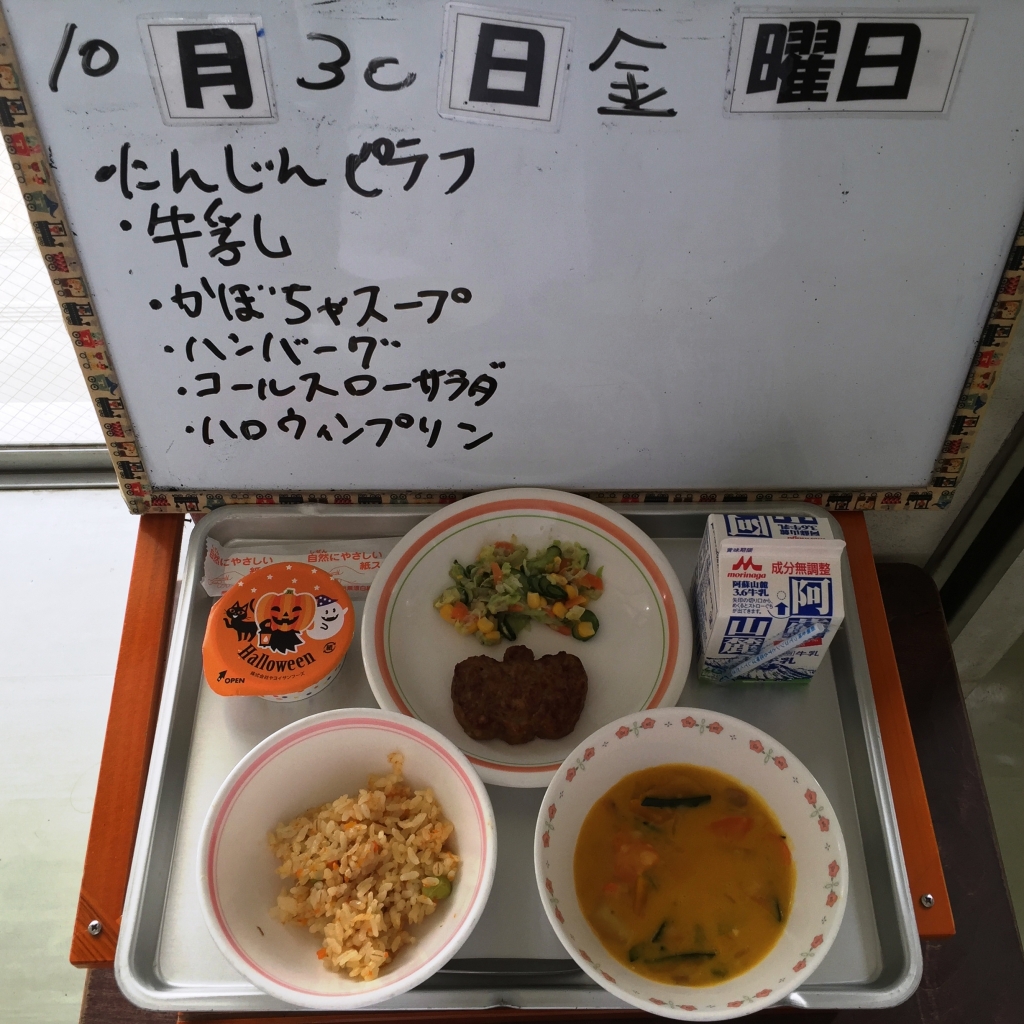 10月30日金曜日
・にんじんピラフ
・牛乳
・かぼちゃスープ
・ハンバーグ
・コールスローサラダ
・ハロウィンプリン
自然にやさしい
自然にやさしい
紙ス
Halloween
OPEN
morinaga
成分無調整
阿蘇山麓
3.6牛乳
阿
山麓
牛乳